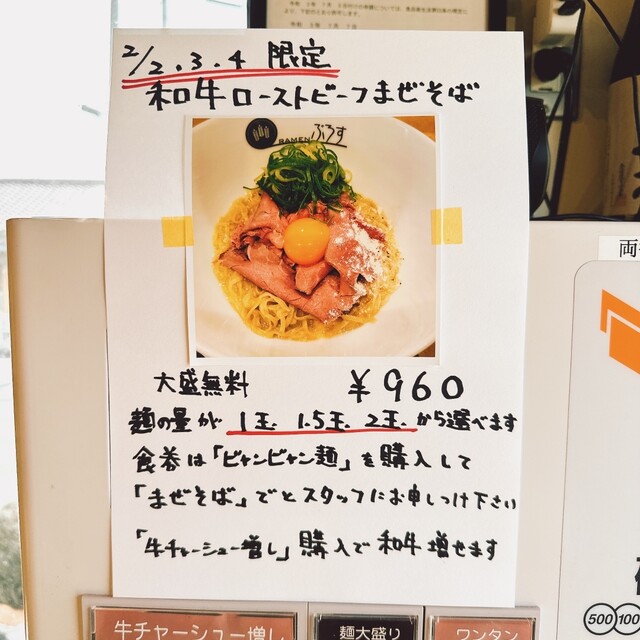 2/2.3.4 限定
和牛ローストビーフまぜそば
RAMEN ぶろす
大盛無料 ¥960
麺の量が 1玉. 1.5玉. 2玉. から選べます
食券は「ビャンビャン麺」を購入して
「まぜそば」でとスタッフにお申しつけ下さい
「牛チャーシュー増し」購入で和牛増せます
牛チャーシュー増し 麺大盛り ワンタン
両
500 100